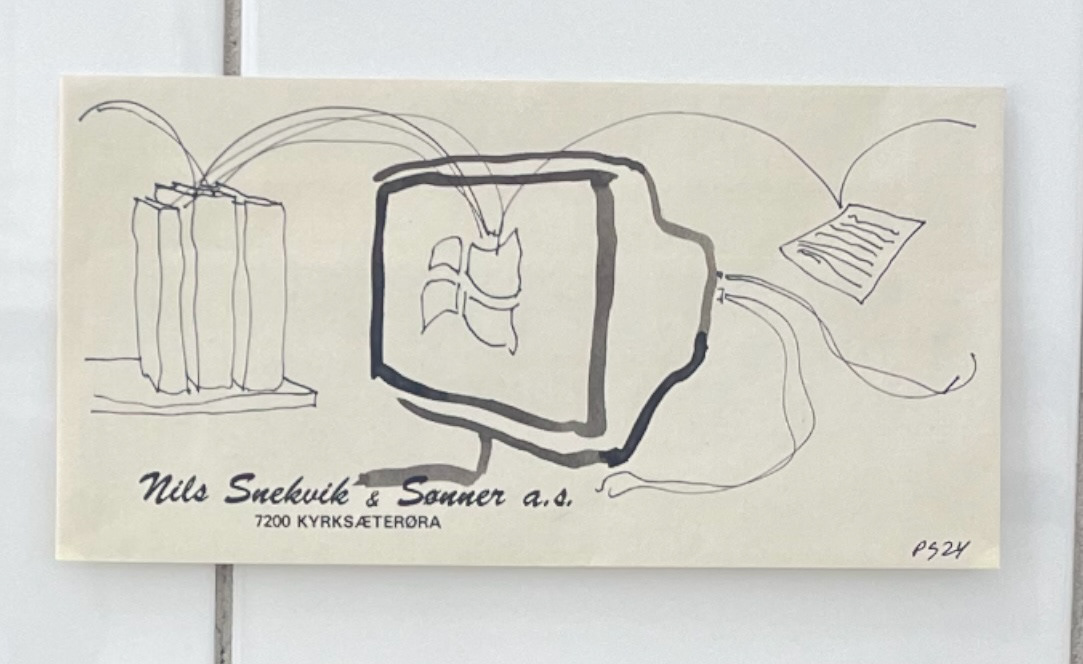 Nils Snekvik & Sønner a.s.
7200 KYRKSÆTERØRA
PS24